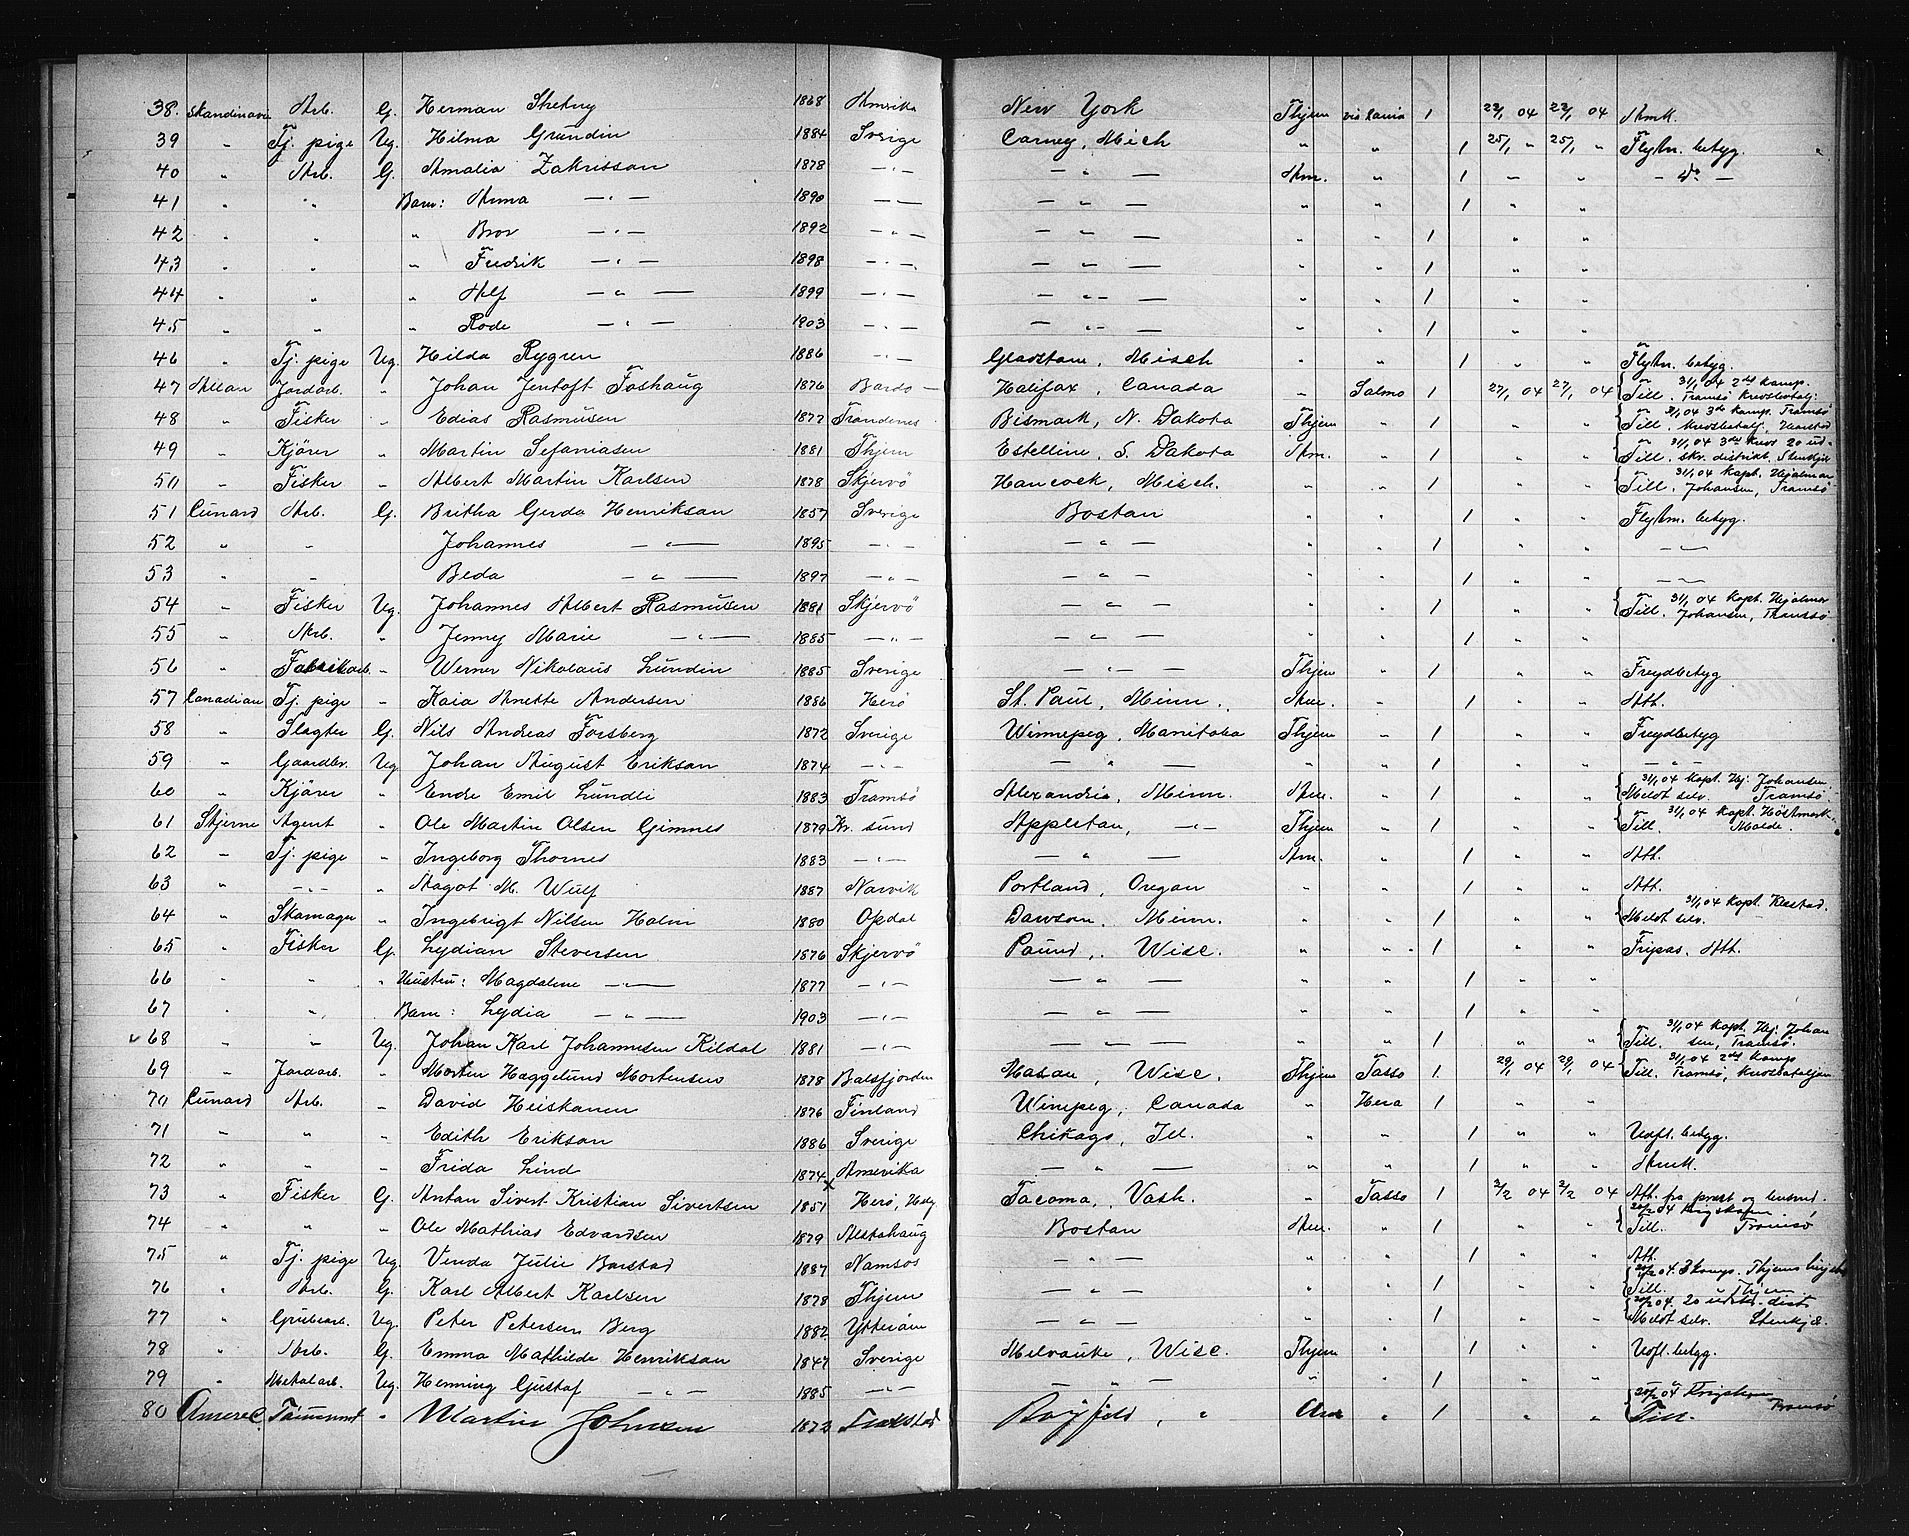 38. Skandinavi Arb. G. Herman 1868 Amerika New York Thjem via Xania 1 22/1 04 22/1 04 Amk.
39 " Tj. pige Ug. Hilma Grundin 1884 Sverige Carney, Mich " " 1 25/1 " 25/1 " Flyttn. betyg.
40 " Arb. G. Amalia Zakrisson 1878 — " — — " — Am. " 1 " " — do —
41 " " Barn: Anna — " — 1890 — " — — " — " " 1 " "
42 " " " Bror — " — 1892 — " — — " — " " 1 " "
43 " " " Fredrik — " — 1898 — " — — " — " " 1 " "
44 " " " Alf — " — 1899 — " — — " — " " 1 " "
45 " " " Rode — " — 1903 — " — — " — " " 1 " "
46 " Tj. pige Ug. Hilda Rygren 1886 — " — Gladstone, Misch " " 1 " " Flyttn. betyg.
47 Allan Jordarb. " Johan Jentoft Foshaug 1876 Bardo Halifax, Canada " Salmo 1 27/1 04 27/1 04 Till. 31/1 04 2det komp. Tromsö Kredsbatalj.
48 " Fisker " Edias Rasmusen 1877 Trondenes Bismark, N. Dakota Thjem " 1 " " Till. 31/1 04 3de komp. Tromsö Kredsbatalj. Harstad
49 " Kjörer " Martin Sefaniasen 1881 Thjem Estelline, S. Dakota Am. " 1 " " Till. 31/1 04 3de Kreds 20 ud- skr. distrikt. Stenkjær
50 " Fisker " Albert Martin Karlsen 1878 Skjervö Hancock, Misch. " " 1 " " Till. 31/1 04 Kapt. Hjalmar Johansen, Tromsö
51 Cunard Arb. G. Britha Gerda Henrikson 1857 Sverige Boston " " 1 " " Flyttn. betyg.
52 " " Johannes — " — 1895 — " — — " — " " 1 " " — " —
53 " " Beda — " — 1897 — " — — " — " " 1 " " — " —
54 " Fisker Ug. Johannes Albert Rasmusen 1881 Skjervö — " — " " 1 " " Till. 31/1 04 Kapt. Hjalmar Johansen, Tromsö
55 " Arb. " Jenny Marie — " — 1885 — " — — " — " " 1 " "
56 " Fabrikarb. " Werner Nikolaus Lundin 1885 Sverige — " — Thjem " 1 " " Frejdbetyg
57 Canadian Tj. pige " Kaia Anette Andersen 1886 Herö St. Paul, Minn. Am. " 1 " " Att.
58 " Slagter G. Nils Andreas Forsberg 1872 Sverige Winnepeg, Manitoba Thjem " 1 " " Frejdbetyg
59 " Gaardbr. Ug. Johan August Erikson 1874 — " — — " — " " 1 " " — " —
60 " Kjörer " Endre Emil Lundli 1883 Tromsö Alexandria, Minn. Am. " 1 " " Meldt selv. 31/1 04 Kapt. Hj. Johansen Tromsö
61 Stjerne Agent " Ole Martin Olsen Gimnes 1879 Kr. sund Appleton, — " — Thjem " 1 " " Till. 31/1 04 Kapt. Höstmark Molde.
62 " Tj. pige " Ingeborg Thornes 1883 — " — — " — Am. " 1 " " Att.
63 " — " — " Aagot M. Wulf 1887 Narvik Portland, Oregon " " 1 " " Att.
64 " Skomager " Ingebrigt Nilsen Holm 1880 Opdal Dawson, Minn. " " 1 " " Meldt selv. 31/1 04 Kapt. Klestad.
65 " Fisker G. Lydian Steversen 1876 Skjervö Pound, Wisc. " " 1 " " Fripas. Att.
66 " " " Hustru: Magdalene — " — 1877 — " — — " — " " 1 " "
67 " " Barn: Lydia — " — 1903 — " — — " — " " 1 " "
68 " " Ug. Johan Karl Johannesen Kildal 1881 — " — — " — " " 1 " " Till. 31/1 04 Kapt. Hj. Johan sen, Tromsö.
69 " Jordarb. " Morten Haggelund Mortensen 1878 Balsfjorden Mason, Wisc. Thjem Tasso 1 29/1 04 29/1 04 Till. 31/1 04 2det Komp. Tromsö, Kredsbataljon
70 Cunard Arb. " David Heiskanen 1876 Finland Winepeg, Canada " Hera 1 " "
71 " " " Edith Erikson 1886 Sverige Chikago, Ill. " " 1 " " Udft. betyg.
72 " " " Frida Lind 1874 Amerika — " — " " 1 " " Amk.
73 " Fisker G. Anton Sivert Kristian Sivertsen 1851 Herö, Helg Tacoma, Vash. " Tasso 1 2/2 04 2/2 04 Att. fra præst og lensmd.
74 " " " Ole Mathias Edvardsen 1879 Alstahaug Boston Am. " 1 " " Till. 20/2 04 Krigskom. Tromsö
75 " Tj. pige Ug. Venda Julie Barstad 1887 Namsos — " — " " 1 " " Att.
76 " Arb. G. Karl Albert Karlsen 1878 Thjem — " — " " 1 " " Till. 20/2 04. 3 komp. Thjems Thjem
77 " Grubearb. Ug. Peter Petersen Berg 1882 Ytteröen — " — " " 1 " " Meldt selv. 20/2 04. 20 udskr. dist Stenkjær.
78 " Arb. G. Emma Mathilde Henrikson 1847 Sverige Milvauke, Wisc. Thjem " 1 " " Udft. betyg.
79 " Metalarb. Ug. Henning Gustaf — " — 1885 — " — — " — " " 1 " "
80 Americ. Tömmermd " Martin Johnsen 1873 Bayfield, " Am " 1 " " Till. 20/2 04 Krigskom Tromsö